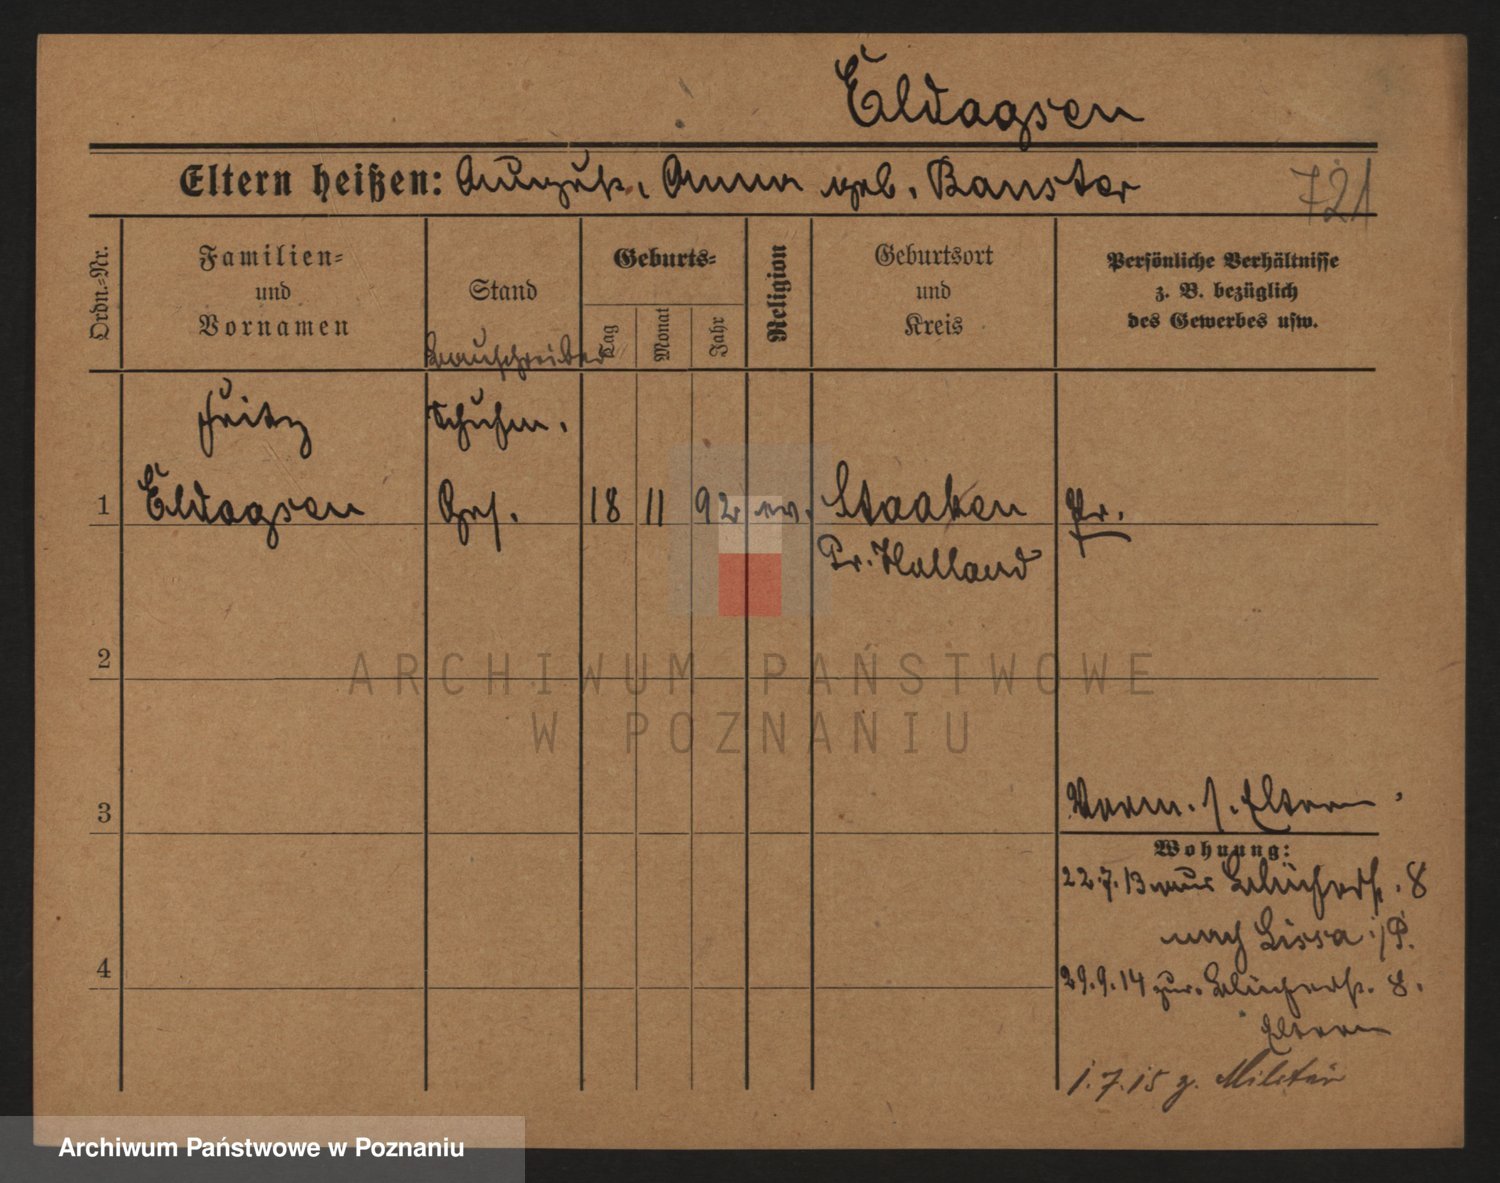 Eldagsen
Eltern heißen: August, Anna geb. Banster
721
Ordn.-Nr.
Familien-
und
Vornamen
Stand
Geburts-
Tag
Monat
Jahr
Religion
Geburtsort
und
Kreis
Persönliche Verhältnisse
z. B. bezüglich
des Gewerbes usw.
Bauschreiber
Fritz
Schuhm.
1
Eldagsen
Ges.
18
11
92
ev.
Staaken
Pr.
Pr. Holland
2
ARCHIWUM PAŃSTWOWE
W POZNANIU
3
Vorm. s. Eltern
Wohnung:
22.7.13 aus Blücherst. 8
nach Lissa i/P.
4
29.9.14 zur. Blücherst. 8.
Eltern
1.7.15 z. Militär
Archiwum Państwowe w Poznaniu